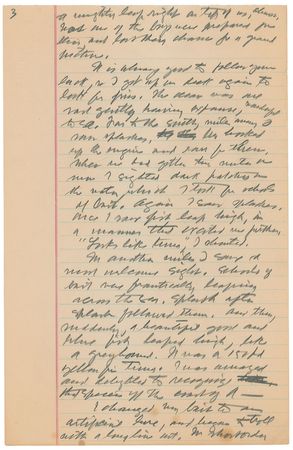 3
or mighty leap right on top of us, alas,
none of the boys was prepared for
this and lost their chance for a grand
picture.
It is always good to follow your
luck, so I got up on deck again to
look for fins. The ocean was one
vast gently heaving expanse,
to sea. Far to the south, miles away I
saw splashes. hooked
up the engine and ran for them.
When we had gotten two miles or
more I sighted dark patches on
the water, which I took for schools
of bait. Again I saw splashes.
Once I saw fish leap high, in
a manner that excited me further.
"Looks like tuna," I shouted.
In another miles I saw a
most welcome sight. Schools of
bait was frantically leaping
across the sea. Splash after
splash followed them. And then
suddenly a beautiful gold and
blue fish leaped high, like
a greyhound. It was a
yellow fin tuna. I was amazed
and delighted to recognize
that species off the coast of
I changed my bait to an
artificial lure, and began to troll
with a long line out. Mr